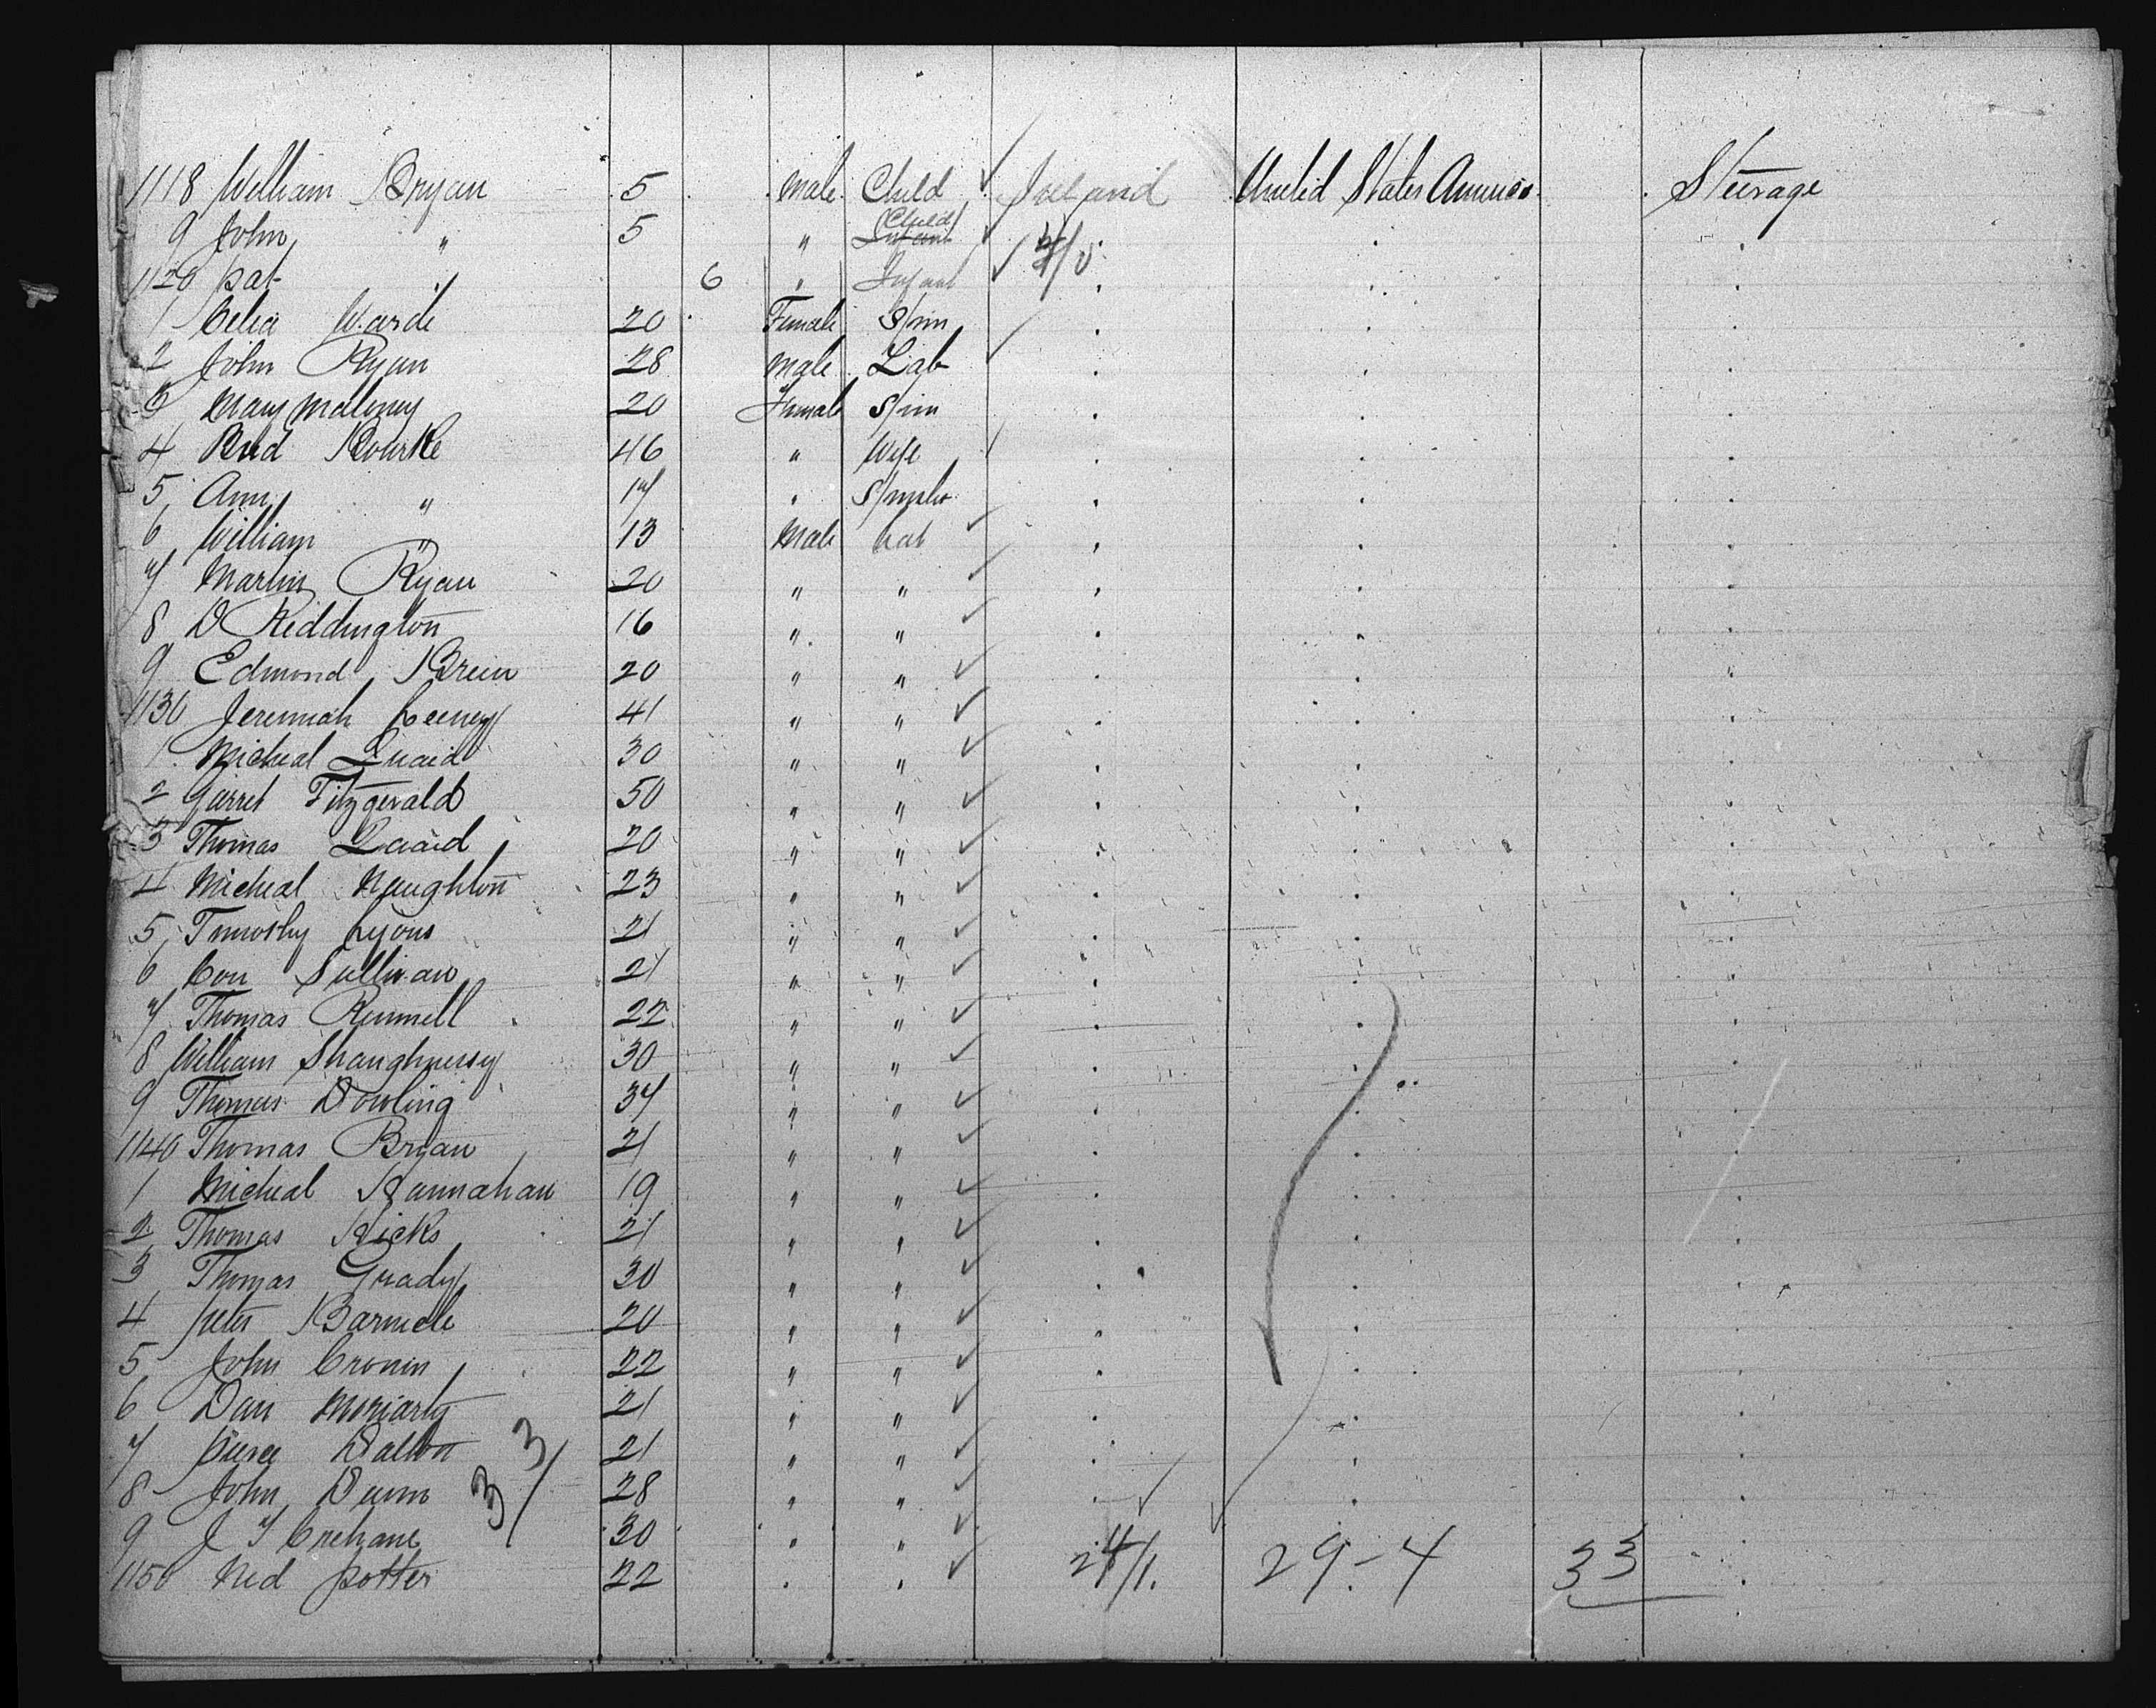 1118 William Bryan 5 Male Child Ireland United States America Steerage
9 John " 5 " Infant Child
1120 Pat " 6 " Infant 4/0
1 Celia Warde 20 Female Spin
2 John Ryan 28 Male Lab
3 Mary Maloney 20 Female Spin
4 Brid Bourke 46 " Wife
5 Ann " 17 " Spinster
6 William " 13 Male Lab
7 Martin Ryan 20 " "
8 D Reddington 16 " "
9 Edmond Brein 20 " "
1130 Jeremiah Leeney 41 " "
1 Micheal Quaid 30 " "
2 Garret Fitzgerald 50 " "
3 Thomas Quaid 20 " "
4 Micheal Naughton 23 " "
5 Timothy Lyons 21 " "
6 Con Sullivan 21 " "
7 Thomas Rummell 22 " "
8 William Shaughnessy 30 " "
9 Thomas Dowling 37 " "
1140 Thomas Bryan 21 " "
1 Micheal Hannahan 19 " "
2 Thomas Hicks 21 " "
3 Thomas Grady 30 " "
4 Peter Barmele 20 " "
5 John Cronin 22 " "
6 Dan Moriarty 21 " "
7 Pierce Dalton 21 " "
8 John Dunn 28 " "
33/
9 J T Crehane 30 " "
1150 Ned Potter 22 " " 24/1. 29-4 33